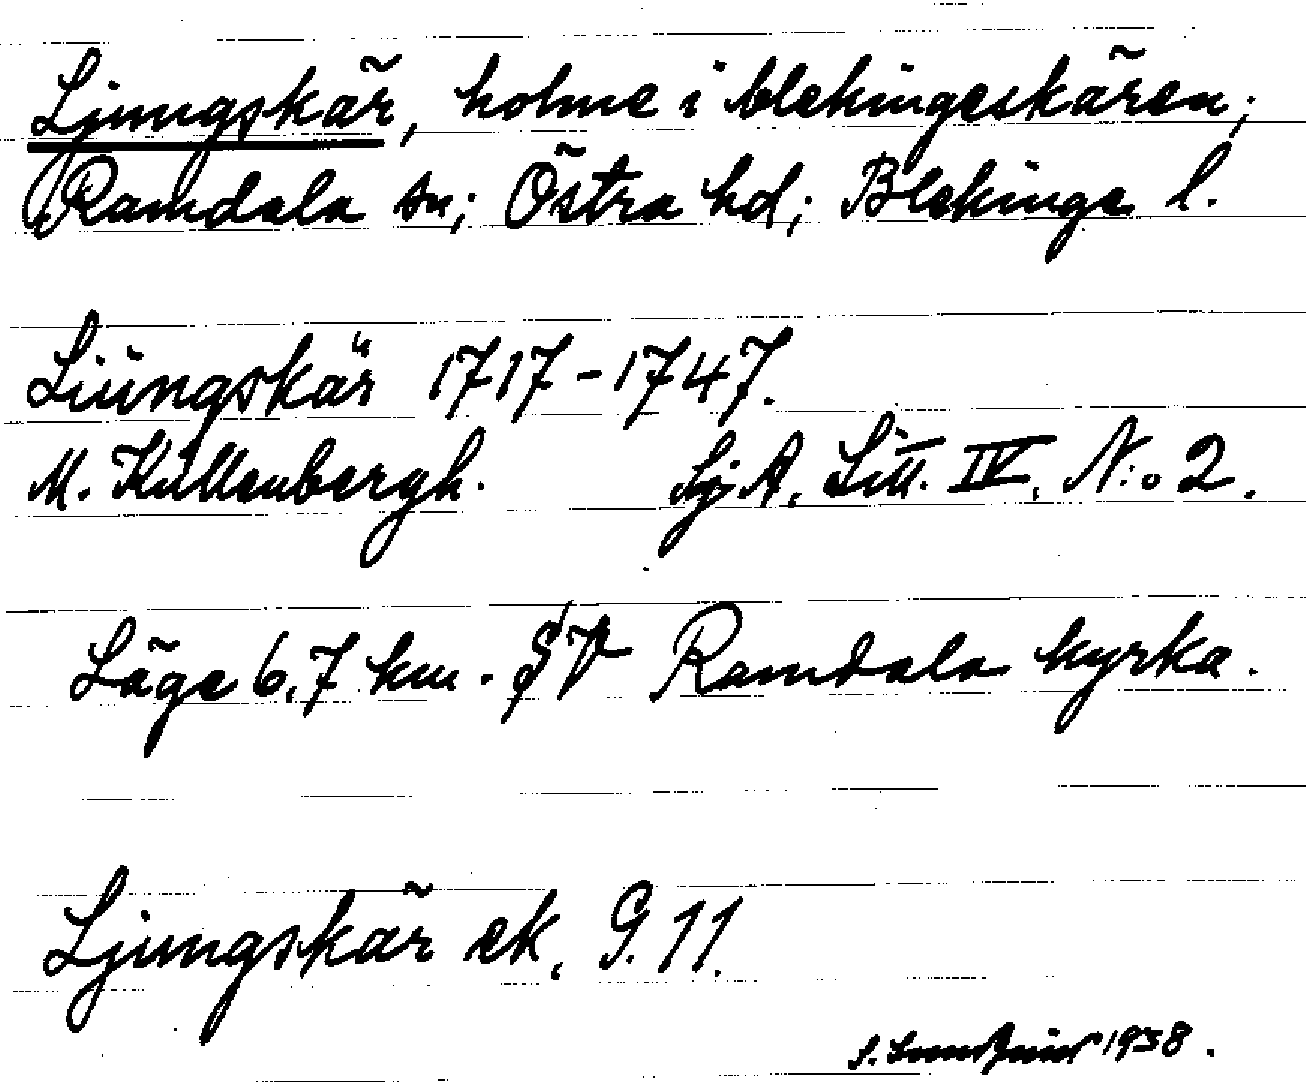 Ljungskär, holme i blekingeskären;
Ramdala sn; Östra hd; Blekinge l.
Liüngskär 1717-1747.
M. Kullenbergh. SjA, Litt. IV, N:o 2.
Läge 6,7 km. SV Ramdala kyrka.
Ljungskär ek. G. 11.
S. 1938.